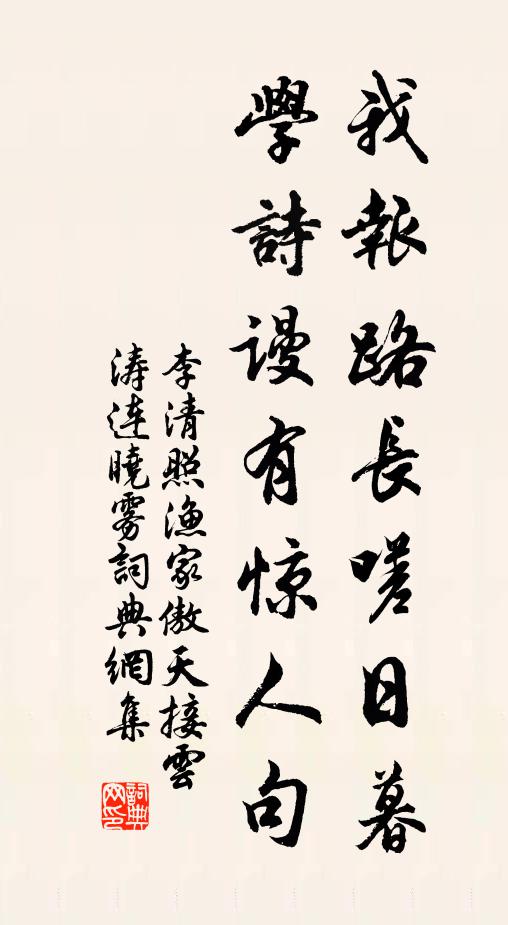 我報路長嗟日暮
學詩謾有惊人句
李清照漁家傲天接雲
涛連曉雾詞典網集
詞典
网印